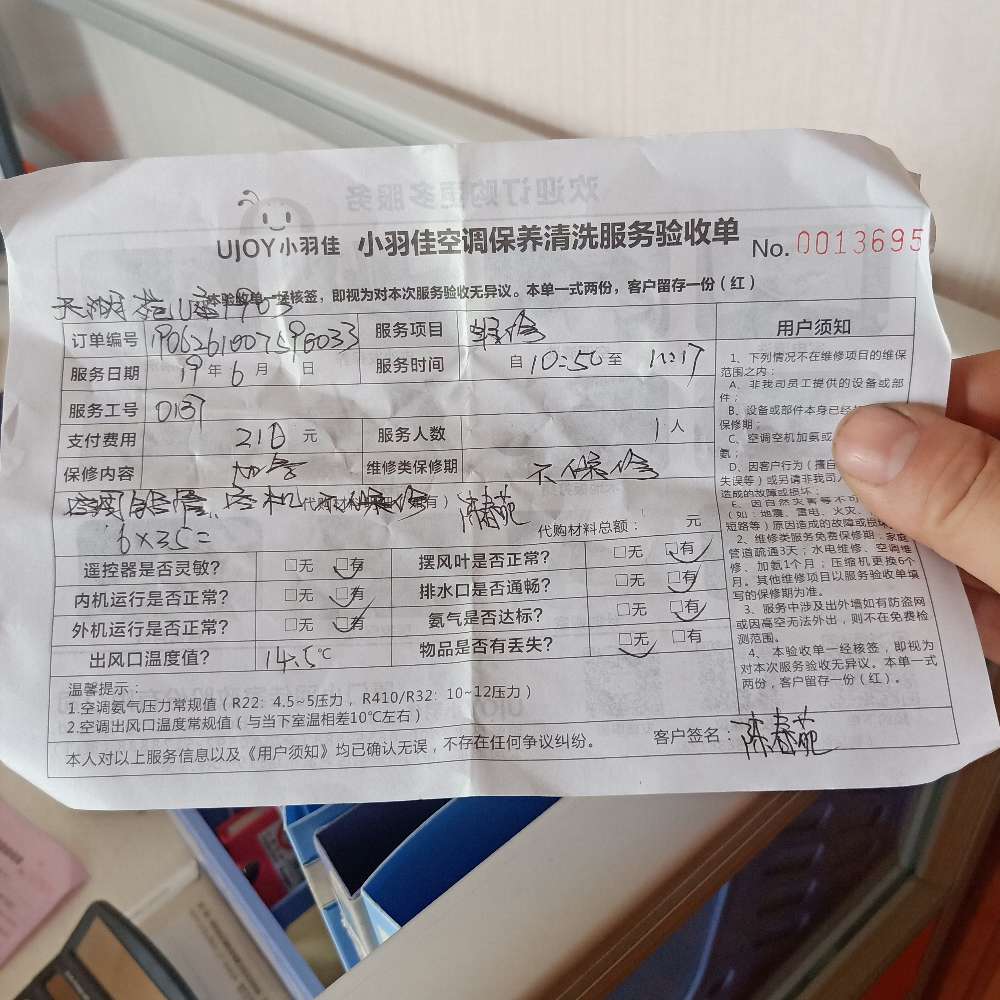 UJOY小羽佳 小羽佳空调保养清洗服务验收单 No.0013695
本验收单一经核签，即视为对本次服务验收无异议。本单一式两份，客户留存一份（红）
订单编号 服务项目 维修
服务日期 19年6月 日 服务时间 自10:50至11:17
服务工号 0137
支付费用 210元 服务人数 1人
保修内容 维修类保修期 不保修
代购材料 陈春苑
6×35=
代购材料总额： 元
遥控器是否灵敏？ □无 □有 摆风叶是否正常？ □无 □有
内机运行是否正常？ □无 □有 排水口是否通畅？ □无 □有
外机运行是否正常？ □无 □有 氨气是否达标？ □无 □有
出风口温度值？ 14.5℃ 物品是否有丢失？ □无 □有
温馨提示：
1.空调氨气压力常规值（R22：4.5~5压力，R410/R32：10~12压力）
2.空调出风口温度常规值（与当下室温相差10℃左右）
本人对以上服务信息以及《用户须知》均已确认无误，不存在任何争议纠纷。 客户签名：陈春苑
用户须知
1、下列情况不在维修项目的维保
范围之内：
A、非我司员工提供的设备或部
件；
B、设备或部件本身已经
保修期；
C、空调空机加氨或
氨；
D、因客户行为（擅自
失误等）或另请非我司
造成的故障或损坏；
E、因自然灾害等不可
（如：地震、雷电、火灾、
短路等）原因造成的故障或损坏
2、维修类服务免费保修期：家庭
管道疏通3天；水电维修、空调维
修、加氨1个月；压缩机更换6个
月。其他维修项目以服务验收单填
写的保修期为准。
3、服务中涉及出外墙如有防盗网
或因高空无法外出，则不在免费检
测范围。
4、本验收单一经核签，即视为
对本次服务验收无异议。本单一式
两份，客户留存一份（红）。